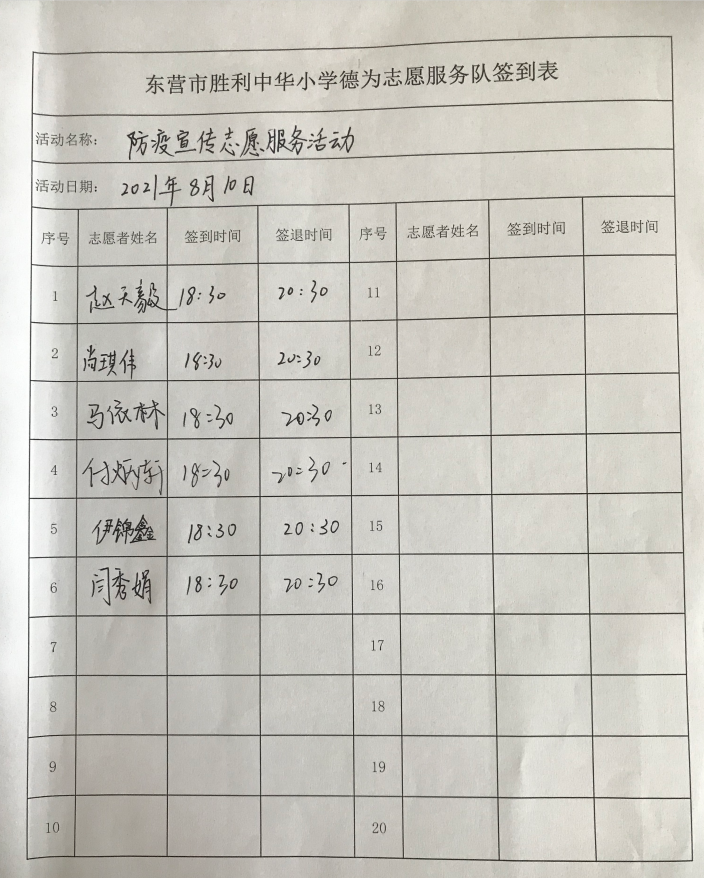 东营市胜利中华小学德为志愿服务队签到表
活动名称： 防疫宣传志愿服务活动
活动日期： 2021年8月10日
序号 志愿者姓名 签到时间 签退时间 序号 志愿者姓名 签到时间 签退时间
1 赵天毅 18:30 20:30 11
2 尚琪伟 18:30 20:30 12
3 马依林 18:30 20:30 13
4 付炳轩 18:30 20:30 14
5 伊锦鑫 18:30 20:30 15
6 闫秀娟 18:30 20:30 16
7 17
8 18
9 19
10 20